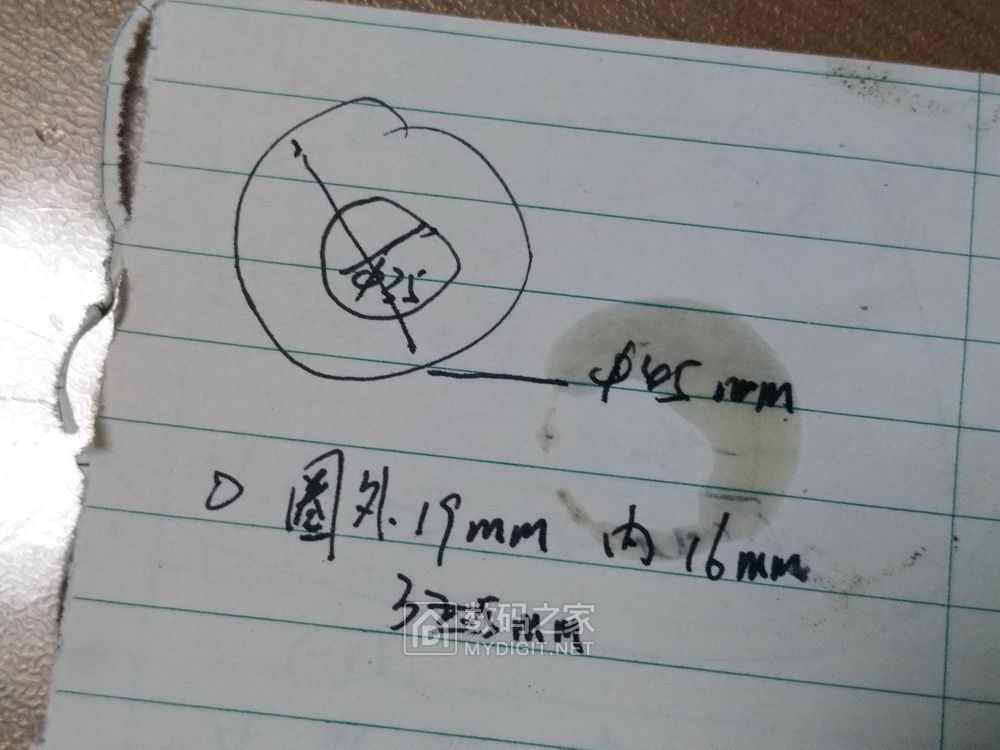 φ25
φ45mm
O 圈外.19mm 内16mm
数码之家
MYDIGIT.NET